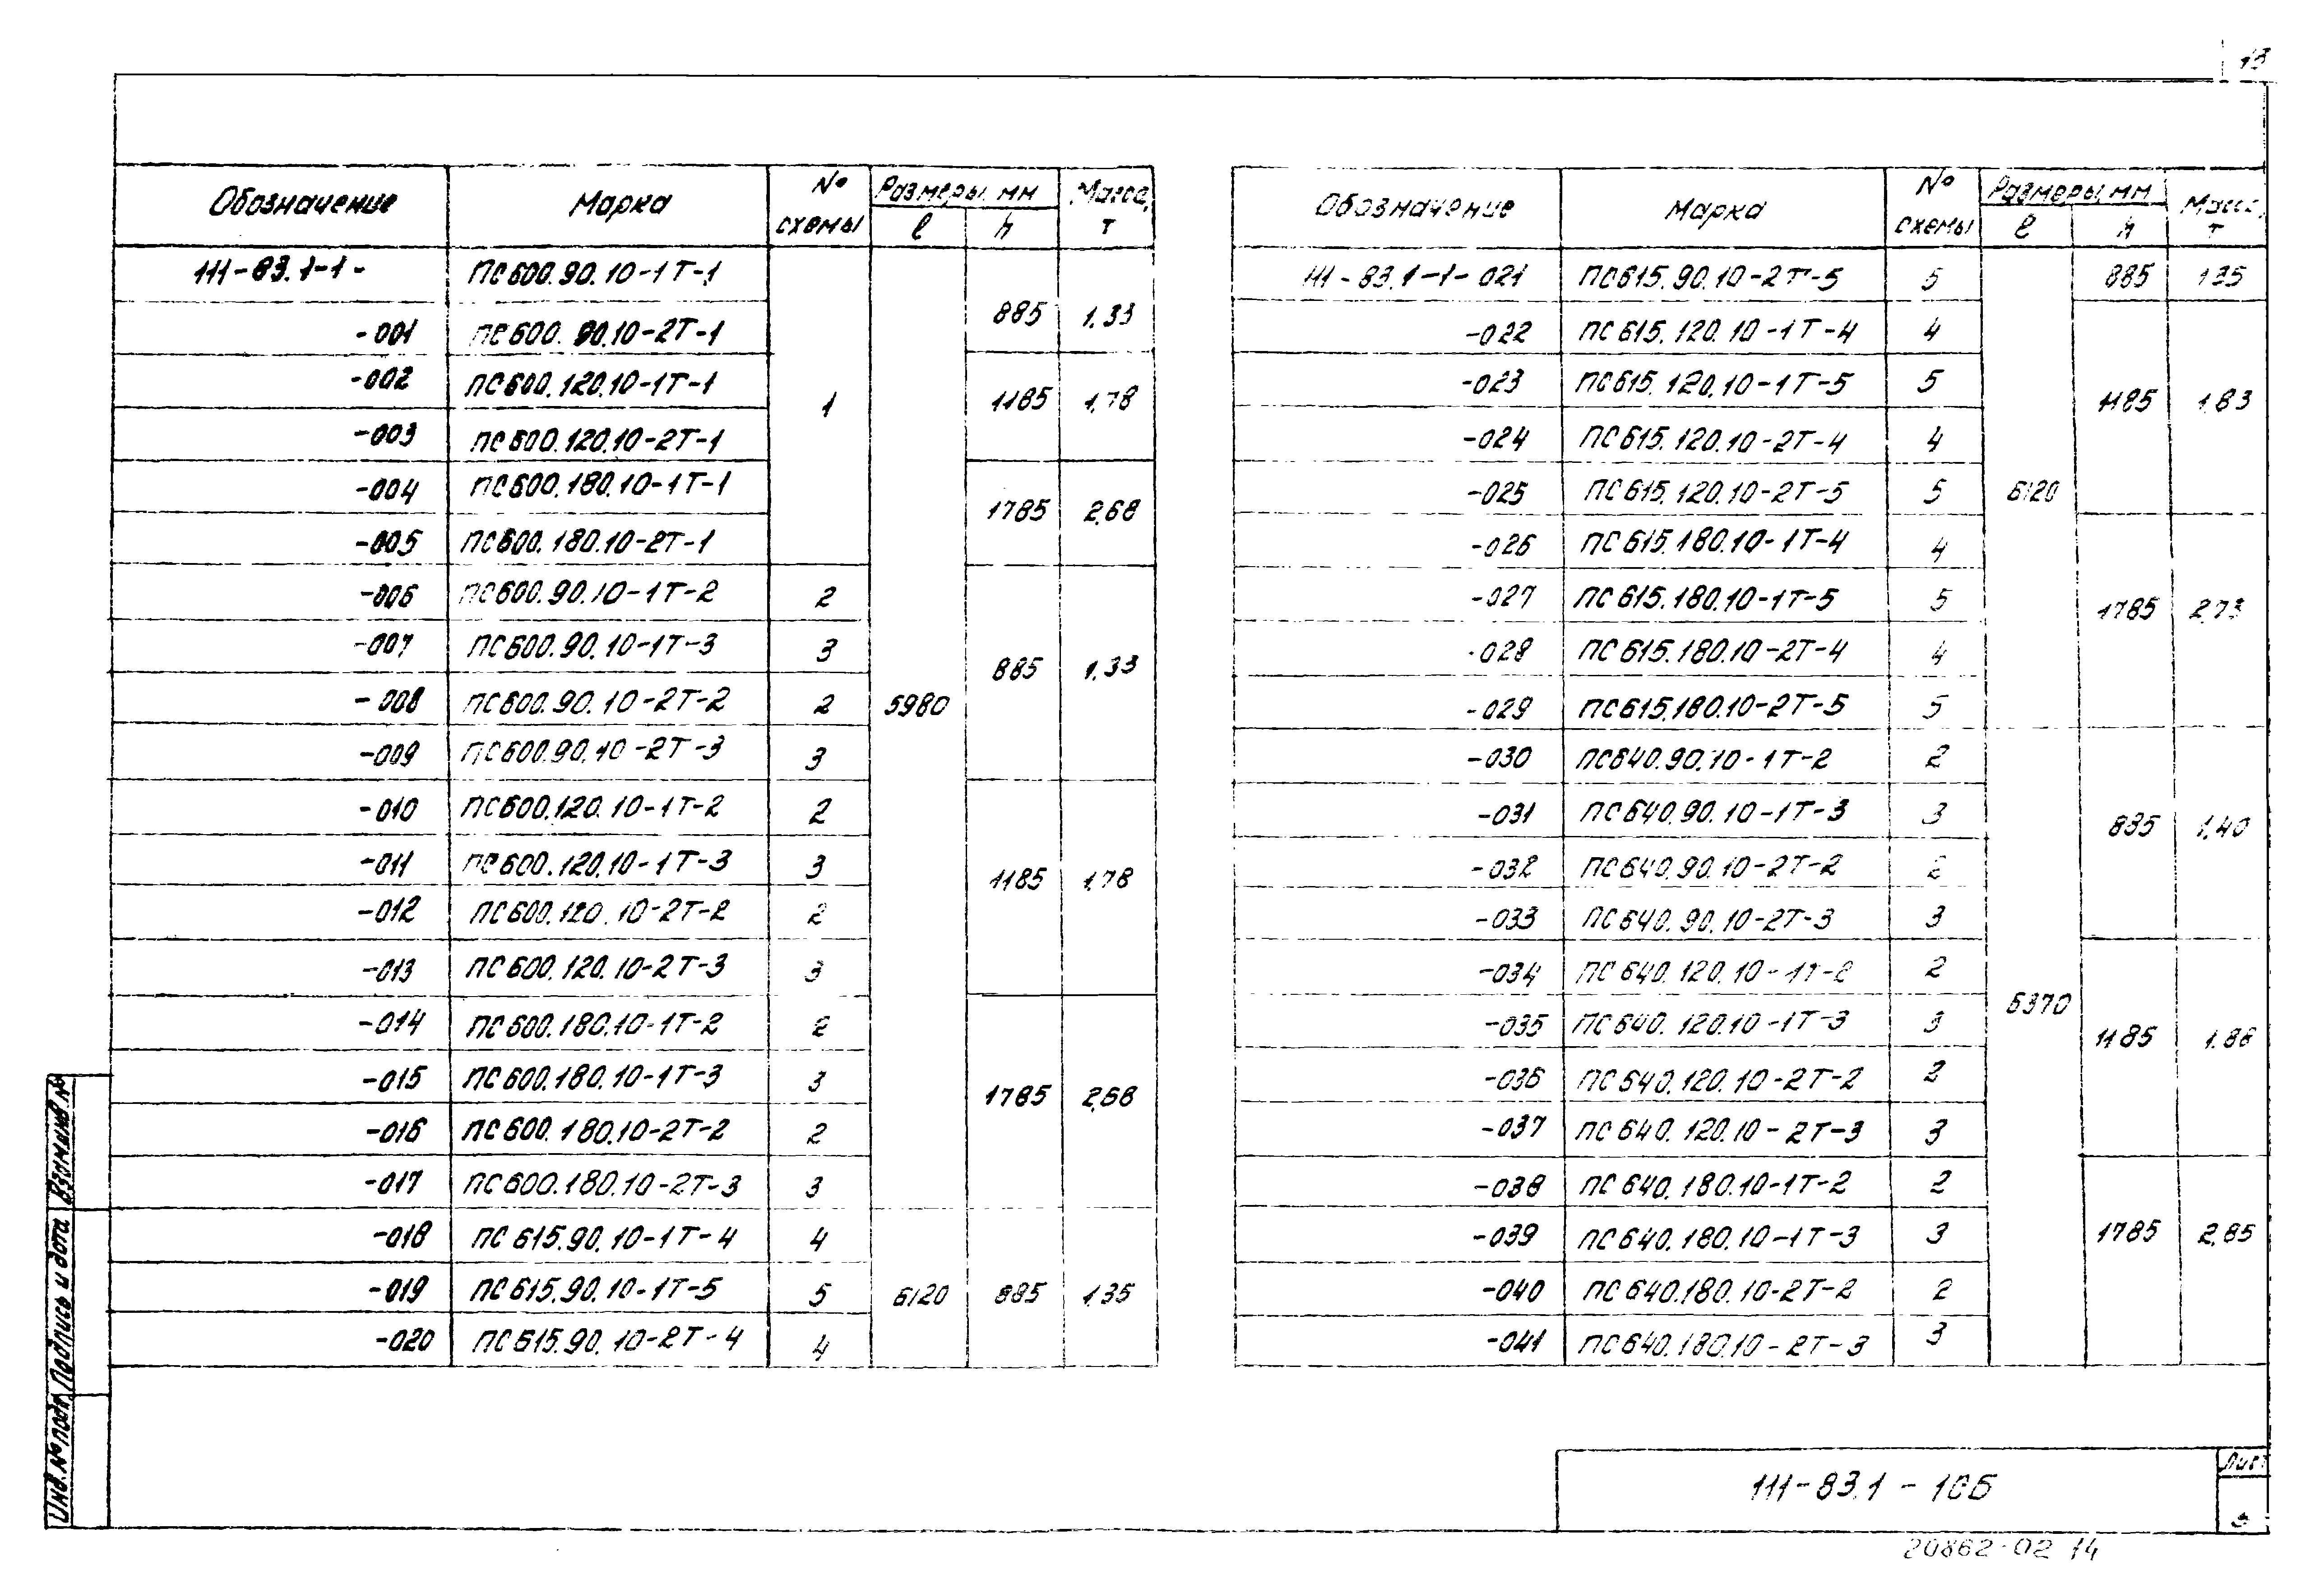 13
Обозначение Марка № схемы Размеры, мм Масса, т
l h
111-83.1-1- ПС600.90.10-1Т-1 1 5980 885 1,33
-001 ПС600.90.10-2Т-1
-002 ПС600.120.10-1Т-1 1185 1,78
-003 ПС600.120.10-2Т-1
-004 ПС600.180.10-1Т-1 1785 2,68
-005 ПС600.180.10-2Т-1
-006 ПС600.90.10-1Т-2 2 885 1,33
-007 ПС600.90.10-1Т-3 3
-008 ПС600.90.10-2Т-2 2
-009 ПС600.90.10-2Т-3 3
-010 ПС600.120.10-1Т-2 2 1185 1,78
-011 ПС600.120.10-1Т-3 3
-012 ПС600.120.10-2Т-2 2
-013 ПС600.120.10-2Т-3 3
-014 ПС600.180.10-1Т-2 2 1785 2,68
-015 ПС600.180.10-1Т-3 3
-016 ПС600.180.10-2Т-2 2
-017 ПС600.180.10-2Т-3 3
-018 ПС615.90.10-1Т-4 4 6120 885 1,35
-019 ПС615.90.10-1Т-5 5
-020 ПС615.90.10-2Т-4 4
Обозначение Марка № схемы Размеры, мм Масса, т
l h
111-83.1-1-021 ПС615.90.10-2Т-5 5 6120 885 1,35
-022 ПС615.120.10-1Т-4 4 1185 1,83
-023 ПС615.120.10-1Т-5 5
-024 ПС615.120.10-2Т-4 4
-025 ПС615.120.10-2Т-5 5
-026 ПС615.180.10-1Т-4 4 1785 2,73
-027 ПС615.180.10-1Т-5 5
-028 ПС615.180.10-2Т-4 4
-029 ПС615.180.10-2Т-5 5
-030 ПС640.90.10-1Т-2 2 6370 885 1,40
-031 ПС640.90.10-1Т-3 3
-032 ПС640.90.10-2Т-2 2
-033 ПС640.90.10-2Т-3 3
-034 ПС640.120.10-1Т-2 2 1185 1,88
-035 ПС640.120.10-1Т-3 3
-036 ПС640.120.10-2Т-2 2
-037 ПС640.120.10-2Т-3 3
-038 ПС640.180.10-1Т-2 2 1785 2,85
-039 ПС640.180.10-1Т-3 3
-040 ПС640.180.10-2Т-2 2
-041 ПС640.180.10-2Т-3 3
Инв. № подл. Подпись и дата Взам.инв.№
111-83.1-1СБ
Лист
20862-02 14